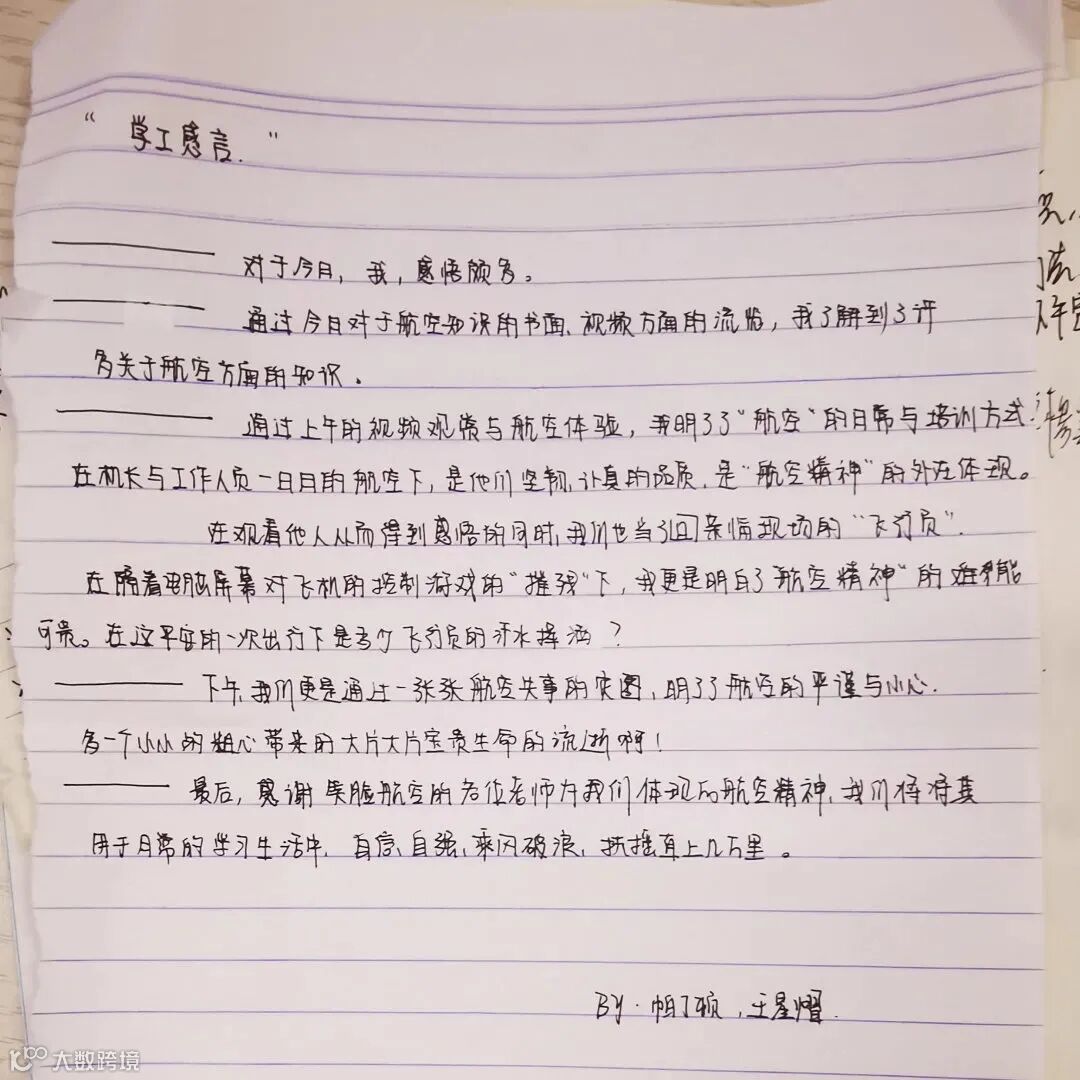 “学工感言.”
对于今日，我，感悟颇多。
通过今日对于航空知识的书面、视频方面的流临，我了解到了许
多关于航空方面的知识。
通过上午的视频观赏与航空体验，我明了了“航空”的日常与培训方式.
在机长与工作人员一日日的航空下，是他们坚韧，认真的品质，是“航空精神”的外在体现。
在观看他人从而得到感悟的同时，我们也当了回亲临现场的“飞行员”.
在隔着电脑屏幕对飞机的控制游戏的“摧残”下，我更是明白了“航空精神”的难能
可贵。在这平安的一次出行下是多少飞行员的汗水挥洒？
下午，我们更是通过一张张航空失事的实图，明了了航空的严谨与小心.
多一个小小的粗心带来的大片大片宝贵生命的流逝啊！
最后，感谢笑脸航空的各位老师为我们体现的航空精神，我们将将其
用于日常的学习生活中，自信，自强，乘风破浪，扶摇直上几万里。
BY.帕丁顿，王星熠.
大数跨境